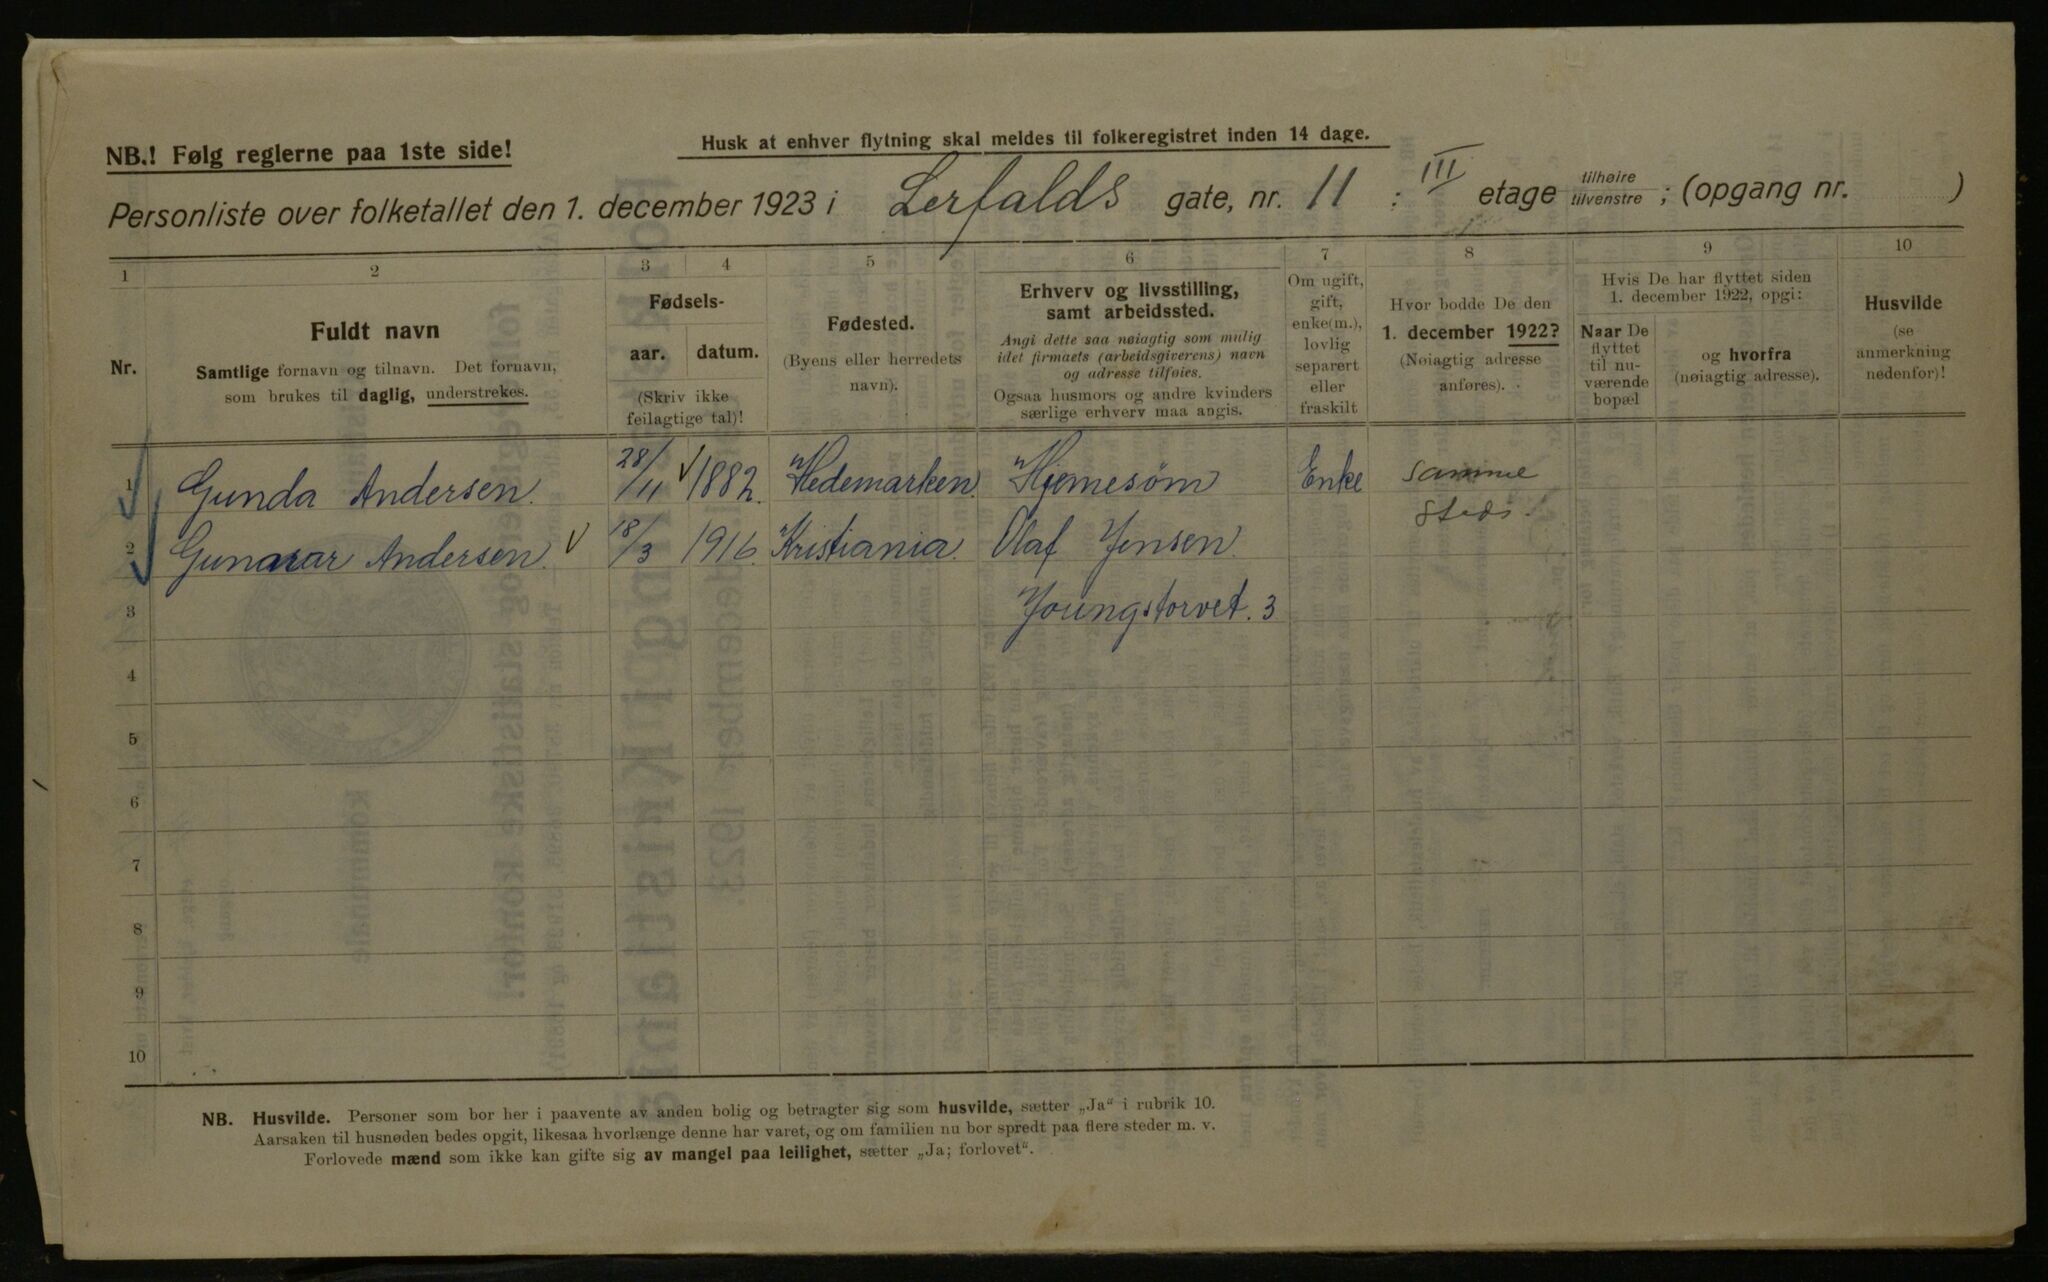 NB.! Følg reglerne paa 1ste side!
Husk at enhver flytning skal meldes til folkeregistret inden 14 dage.
Personliste over folketallet den 1. december 1923 i Lerfalds gate, nr. 11 : III etage tilhøire tilvenstre ; (opgang nr. )
1 2 3 4 5 6 7 8 9 10
Nr.
Fuldt navn
Samtlige fornavn og tilnavn. Det fornavn,
som brukes til daglig, understrekes.
Fødsels-
aar. datum.
(Skriv ikke
feilagtige tal)!
Fødested.
(Byens eller herredets
navn).
Erhverv og livsstilling,
samt arbeidssted.
Angi dette saa nøiagtig som mulig
idet firmaets (arbeidsgiverens) navn
og adresse tilføies.
Ogsaa husmors og andre kvinders
særlige erhverv maa angis.
Om ugift,
gift,
enke(m.),
lovlig
separert
eller
fraskilt
Hvor bodde De den
1. december 1922?
(Nøiagtig adresse
anføres).
Hvis De har flyttet siden
1. december 1922, opgi:
Naar De
flyttet
til nu-
værende
bopæl
og hvorfra
(nøiagtig adresse).
Husvilde
(se
anmerkning
nedenfor)!
1 Gunda Andersen. 28/11 1882. Hedemarken. Hjemesøm Enke samme
steds.
2 Gunnar Andersen. 18/3 1916. Kristiania. Olaf Jensen.
3 Youngstorvet. 3
4
5
6
7
8
9
10
NB. Husvilde. Personer som bor her i paavente av anden bolig og betragter sig som husvilde, sætter „Ja“ i rubrik 10.
Aarsaken til husnøden bedes opgit, likesaa hvorlænge denne har varet, og om familien nu bor spredt paa flere steder m. v.
Forlovede mænd som ikke kan gifte sig av mangel paa leilighet, sætter „Ja; forlovet“.